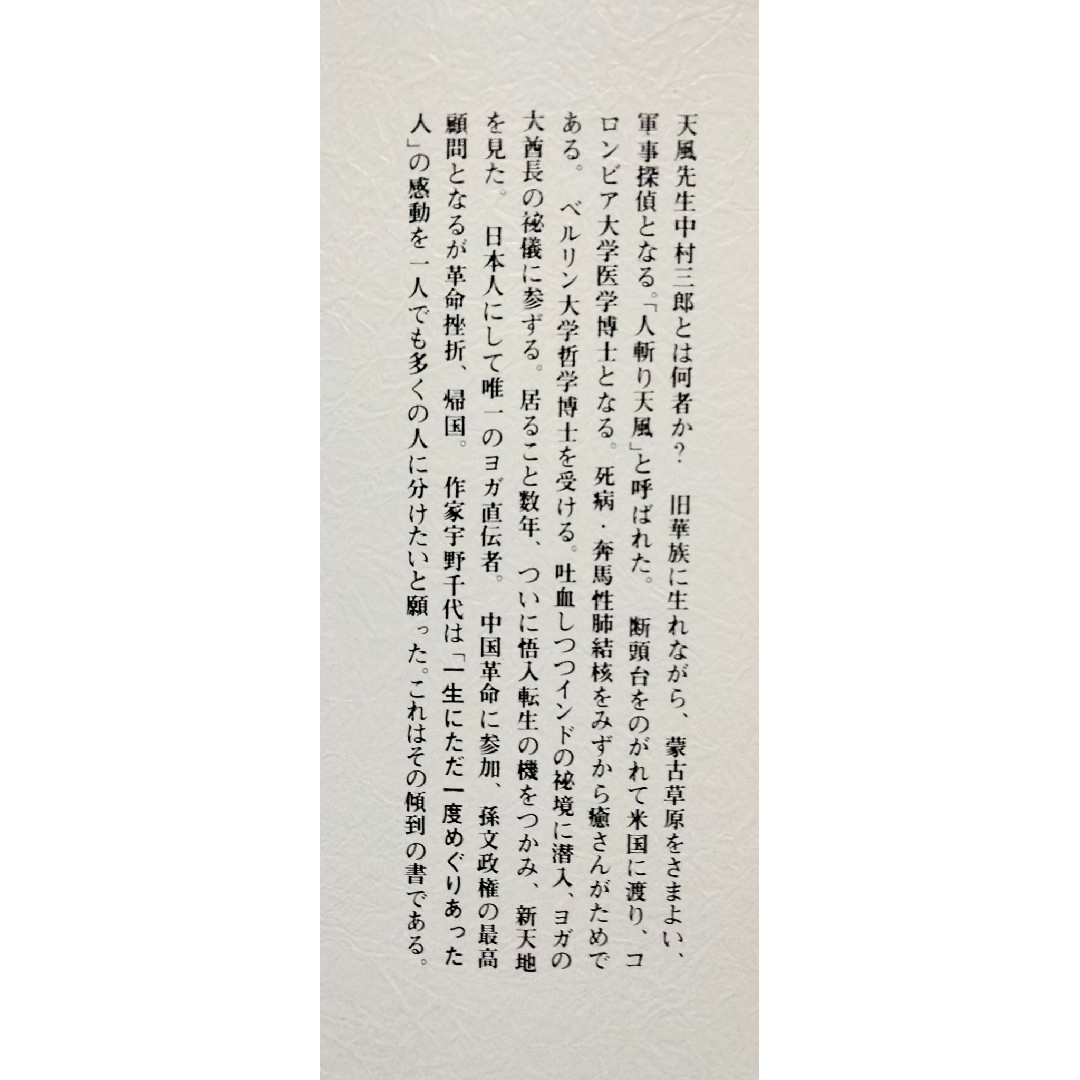 天風先生中村三郎とは何者か?　旧華族に生れながら、蒙古草原をさまよい、
軍事探偵となる。「人斬り天風」と呼ばれた。　断頭台をのがれて米国に渡り、コ
ロンビア大学医学博士となる。死病・奔馬性肺結核をみずから癒さんがためで
ある。　ベルリン大学哲学博士を受ける。吐血しつつインドの祕境に潜入、ヨガの
大酋長の祕儀に参ずる。居ること数年、ついに悟入転生の機をつかみ、新天地
を見た。　日本人にして唯一のヨガ直伝者。　中国革命に参加、孫文政権の最高
顧問となるが革命挫折、帰国。　作家宇野千代は「一生にただ一度めぐりあった
人」の感動を一人でも多くの人に分けたいと願った。これはその傾到の書である。